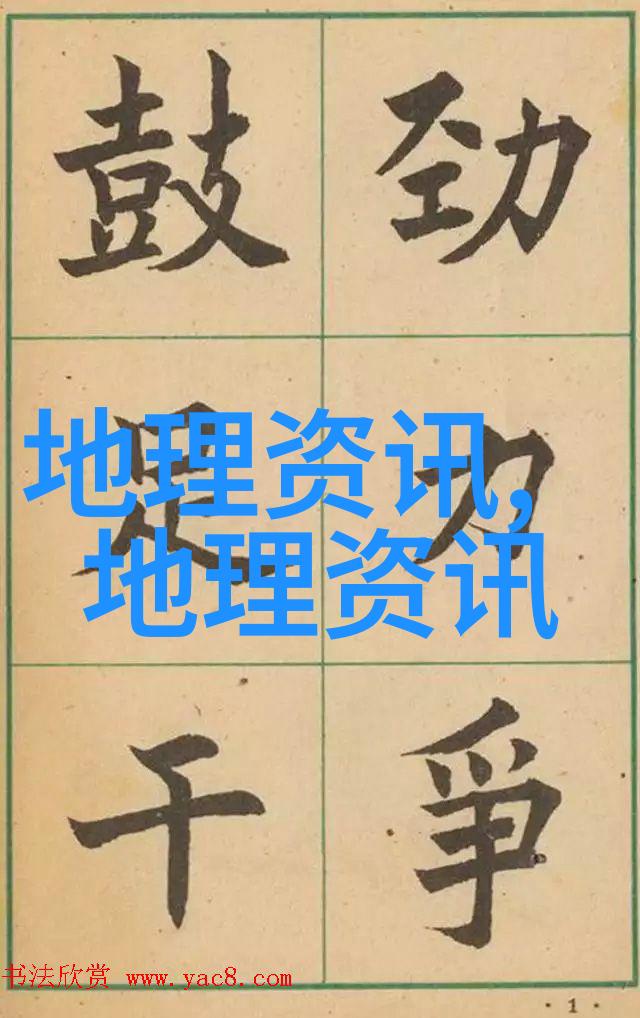 鼓足干
劲力爭
地理资讯,
地理资讯
书法欣赏 www.yac8.com
·1·